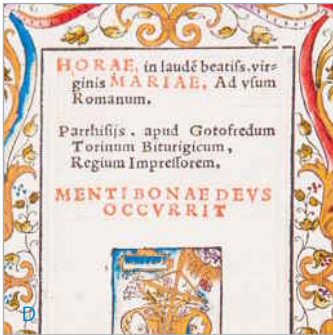 HORAE, in laudē beatiſs. vir-
ginis MARIAE, Ad vſum
Romanum.
Parrhiſijs . apud Gotofredum
Torinum Biturigicum,
Regium Impreſſorem.
MENTI BONAE DEVS
OCCVRRIT
D